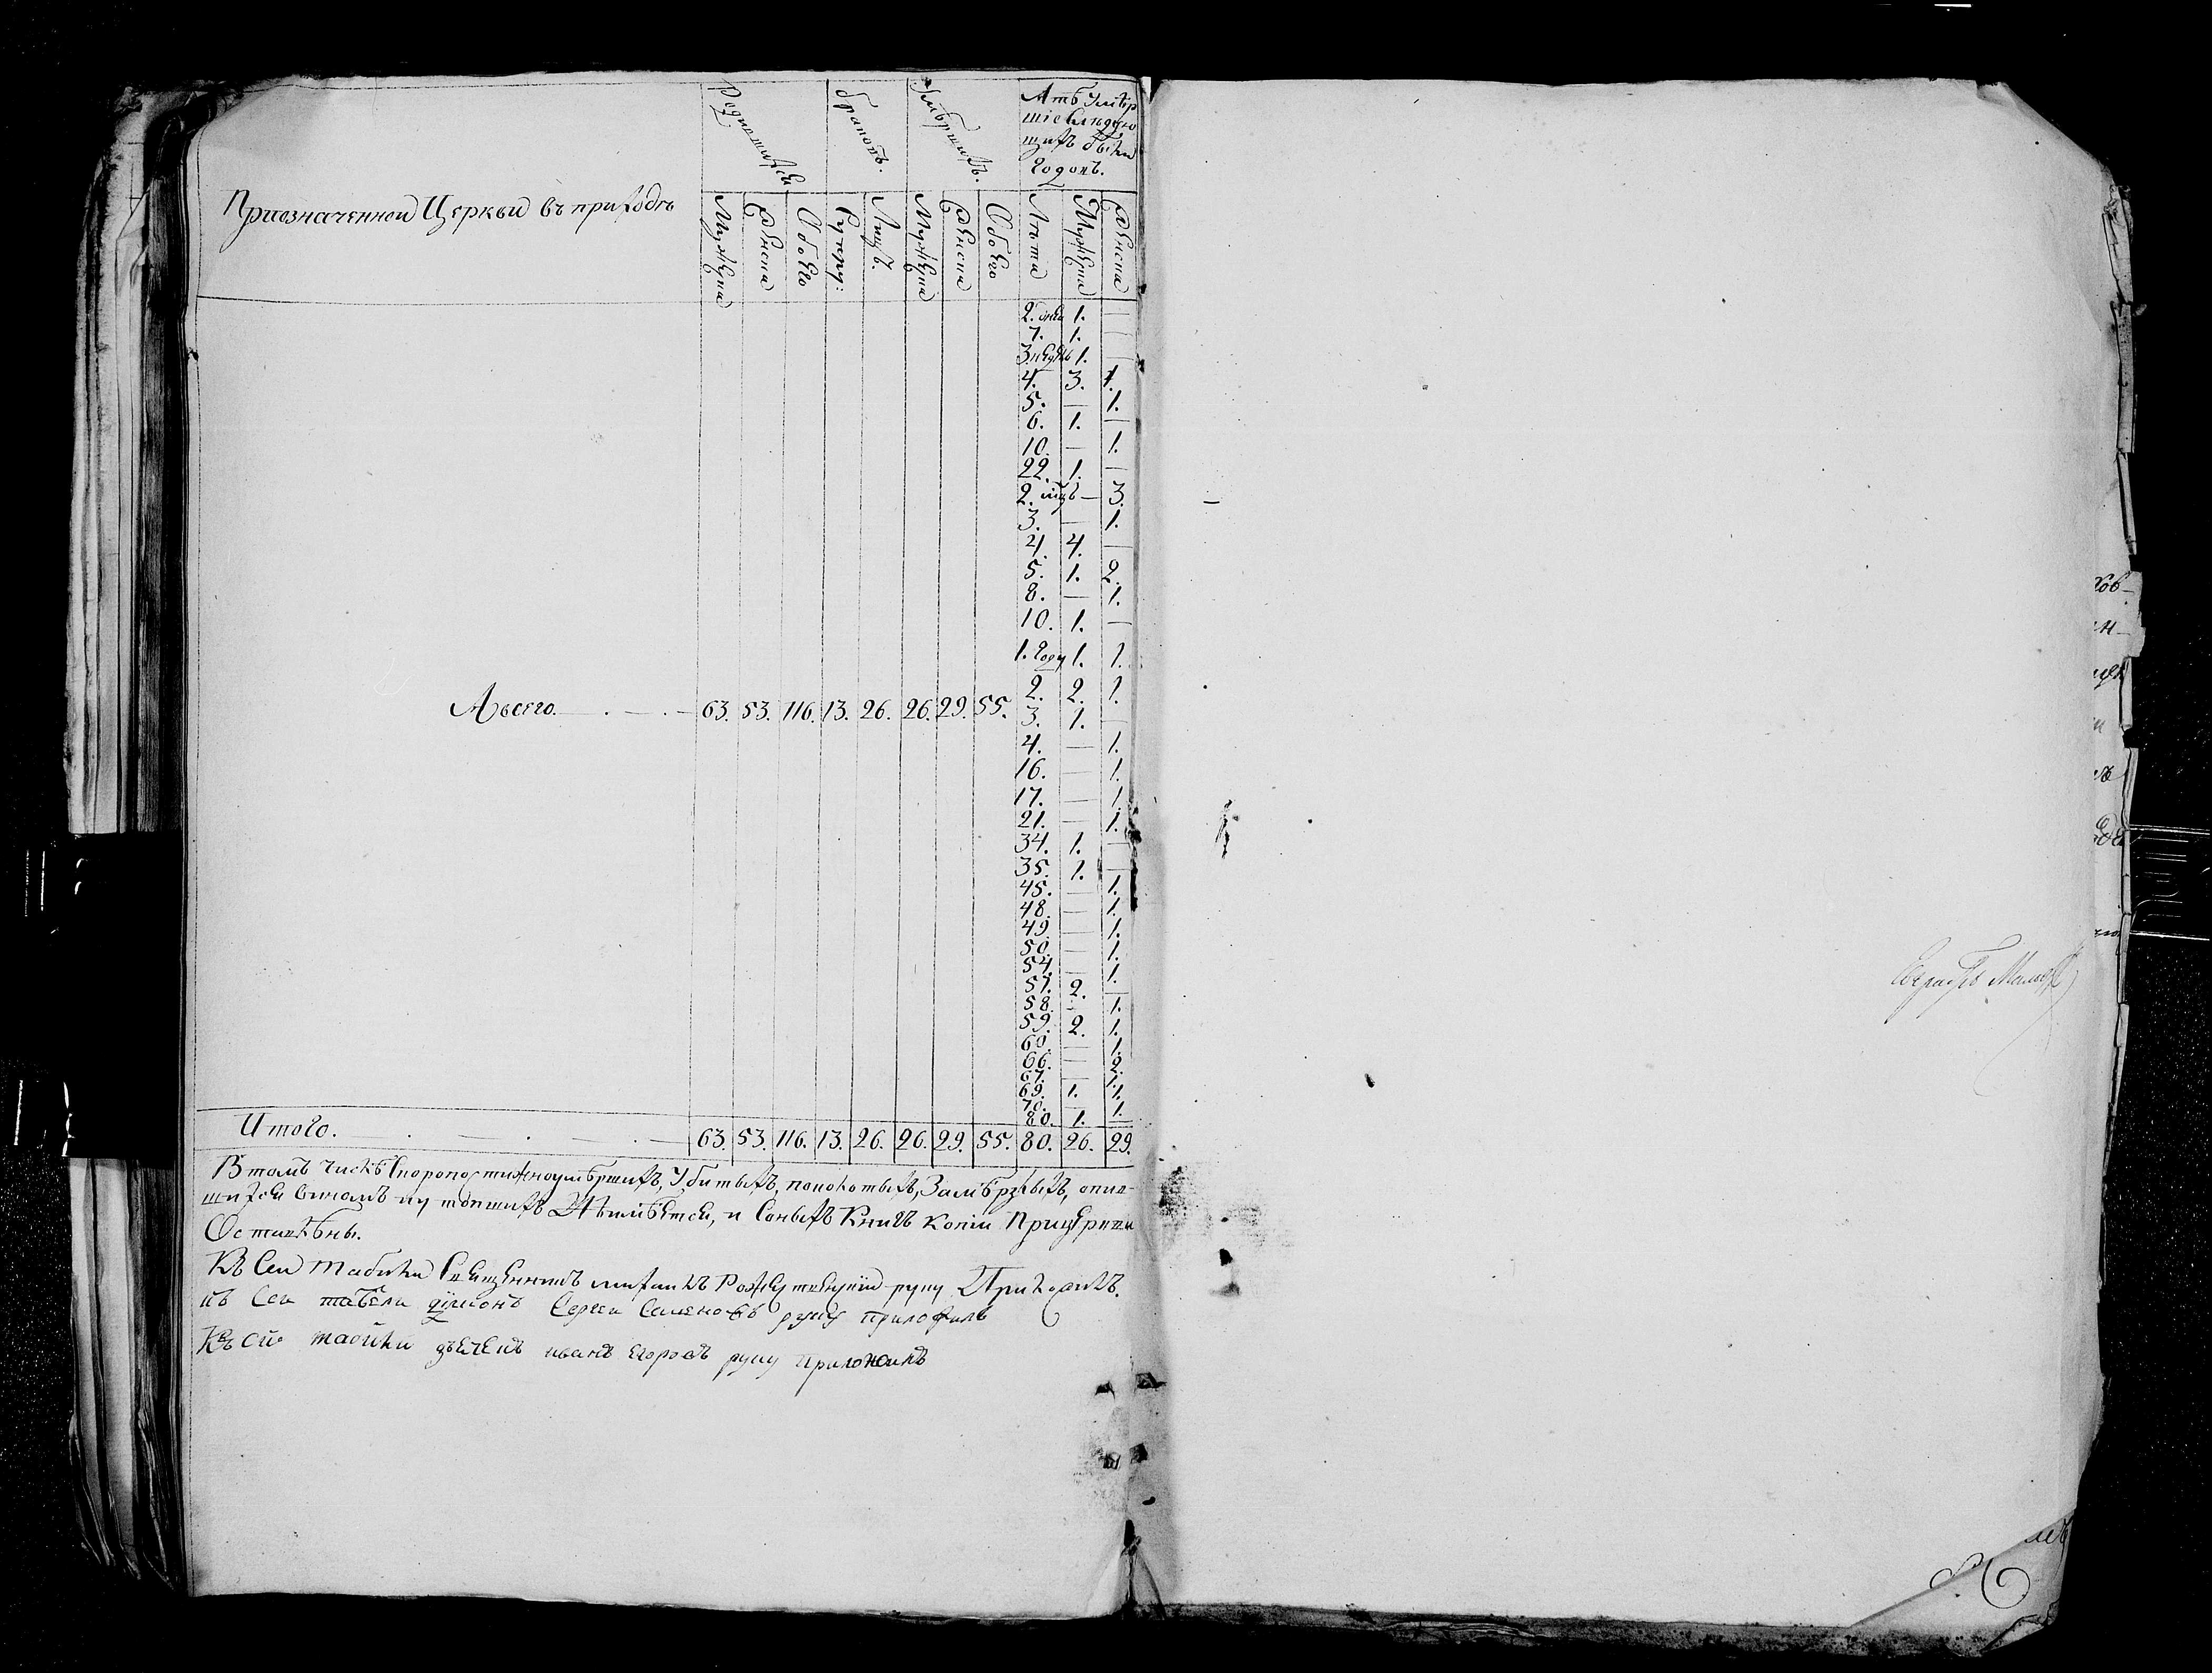 Родившихся браковъ. умѣршихъ. Лѣтъ умѣр
шіе слѣдую
щихъ были
годовъ.
Приозначенной Церкви въ приходѣ
Мужеска Женска Обоего Супру: Лицъ. Мужеска Женска Обоего Лѣта Мужеска Женска
2. дней 1. —
7. 1. —
3 недѣль 1. —
4. 3. 1.
5. — 1.
6. 1. —
10. — 1.
22. 1. —
2. мцъ — 3.
3. — 1.
4. 4. —
5. 1. 2.
8. — 1.
10. 1. —
1. году 1. 1.
2. 2. 1.
Авсего. 63. 53. 116. 13. 26. 26. 29. 55.
3. 1. —
4. — 1.
16. — 1.
17. — 1.
21. — 1.
34. 1. —
35. 1. —
45. — 1.
48. — 1.
49. — 1.
50. — 1.
54. — 1.
57. 2. —
58. 1.
59. 2. 1.
60. — 1.
66. — 2.
67. — 1.
69. 1. 1.
70. — 1.
80. 1. —
Итого. 63. 53. 116. 13. 26. 26. 29. 55. 80. 26. 29.
Втомъ числѣ скоропостижноумѣршихъ, Убитыхъ, заМѣрзлыхъ, опив-
шихся виномъ и утопшихъ Неимѣется, и Соныхъ Книгъ копіи Прицеркви
Оставлены.
Къ Сей табели Священникъ руку Приложилъ.
къ Сей табели дїяконъ Сергеи Семеновъ руку приложилъ
Къ сей табели дьячекъ иванъ егоровъ руку приложилъ